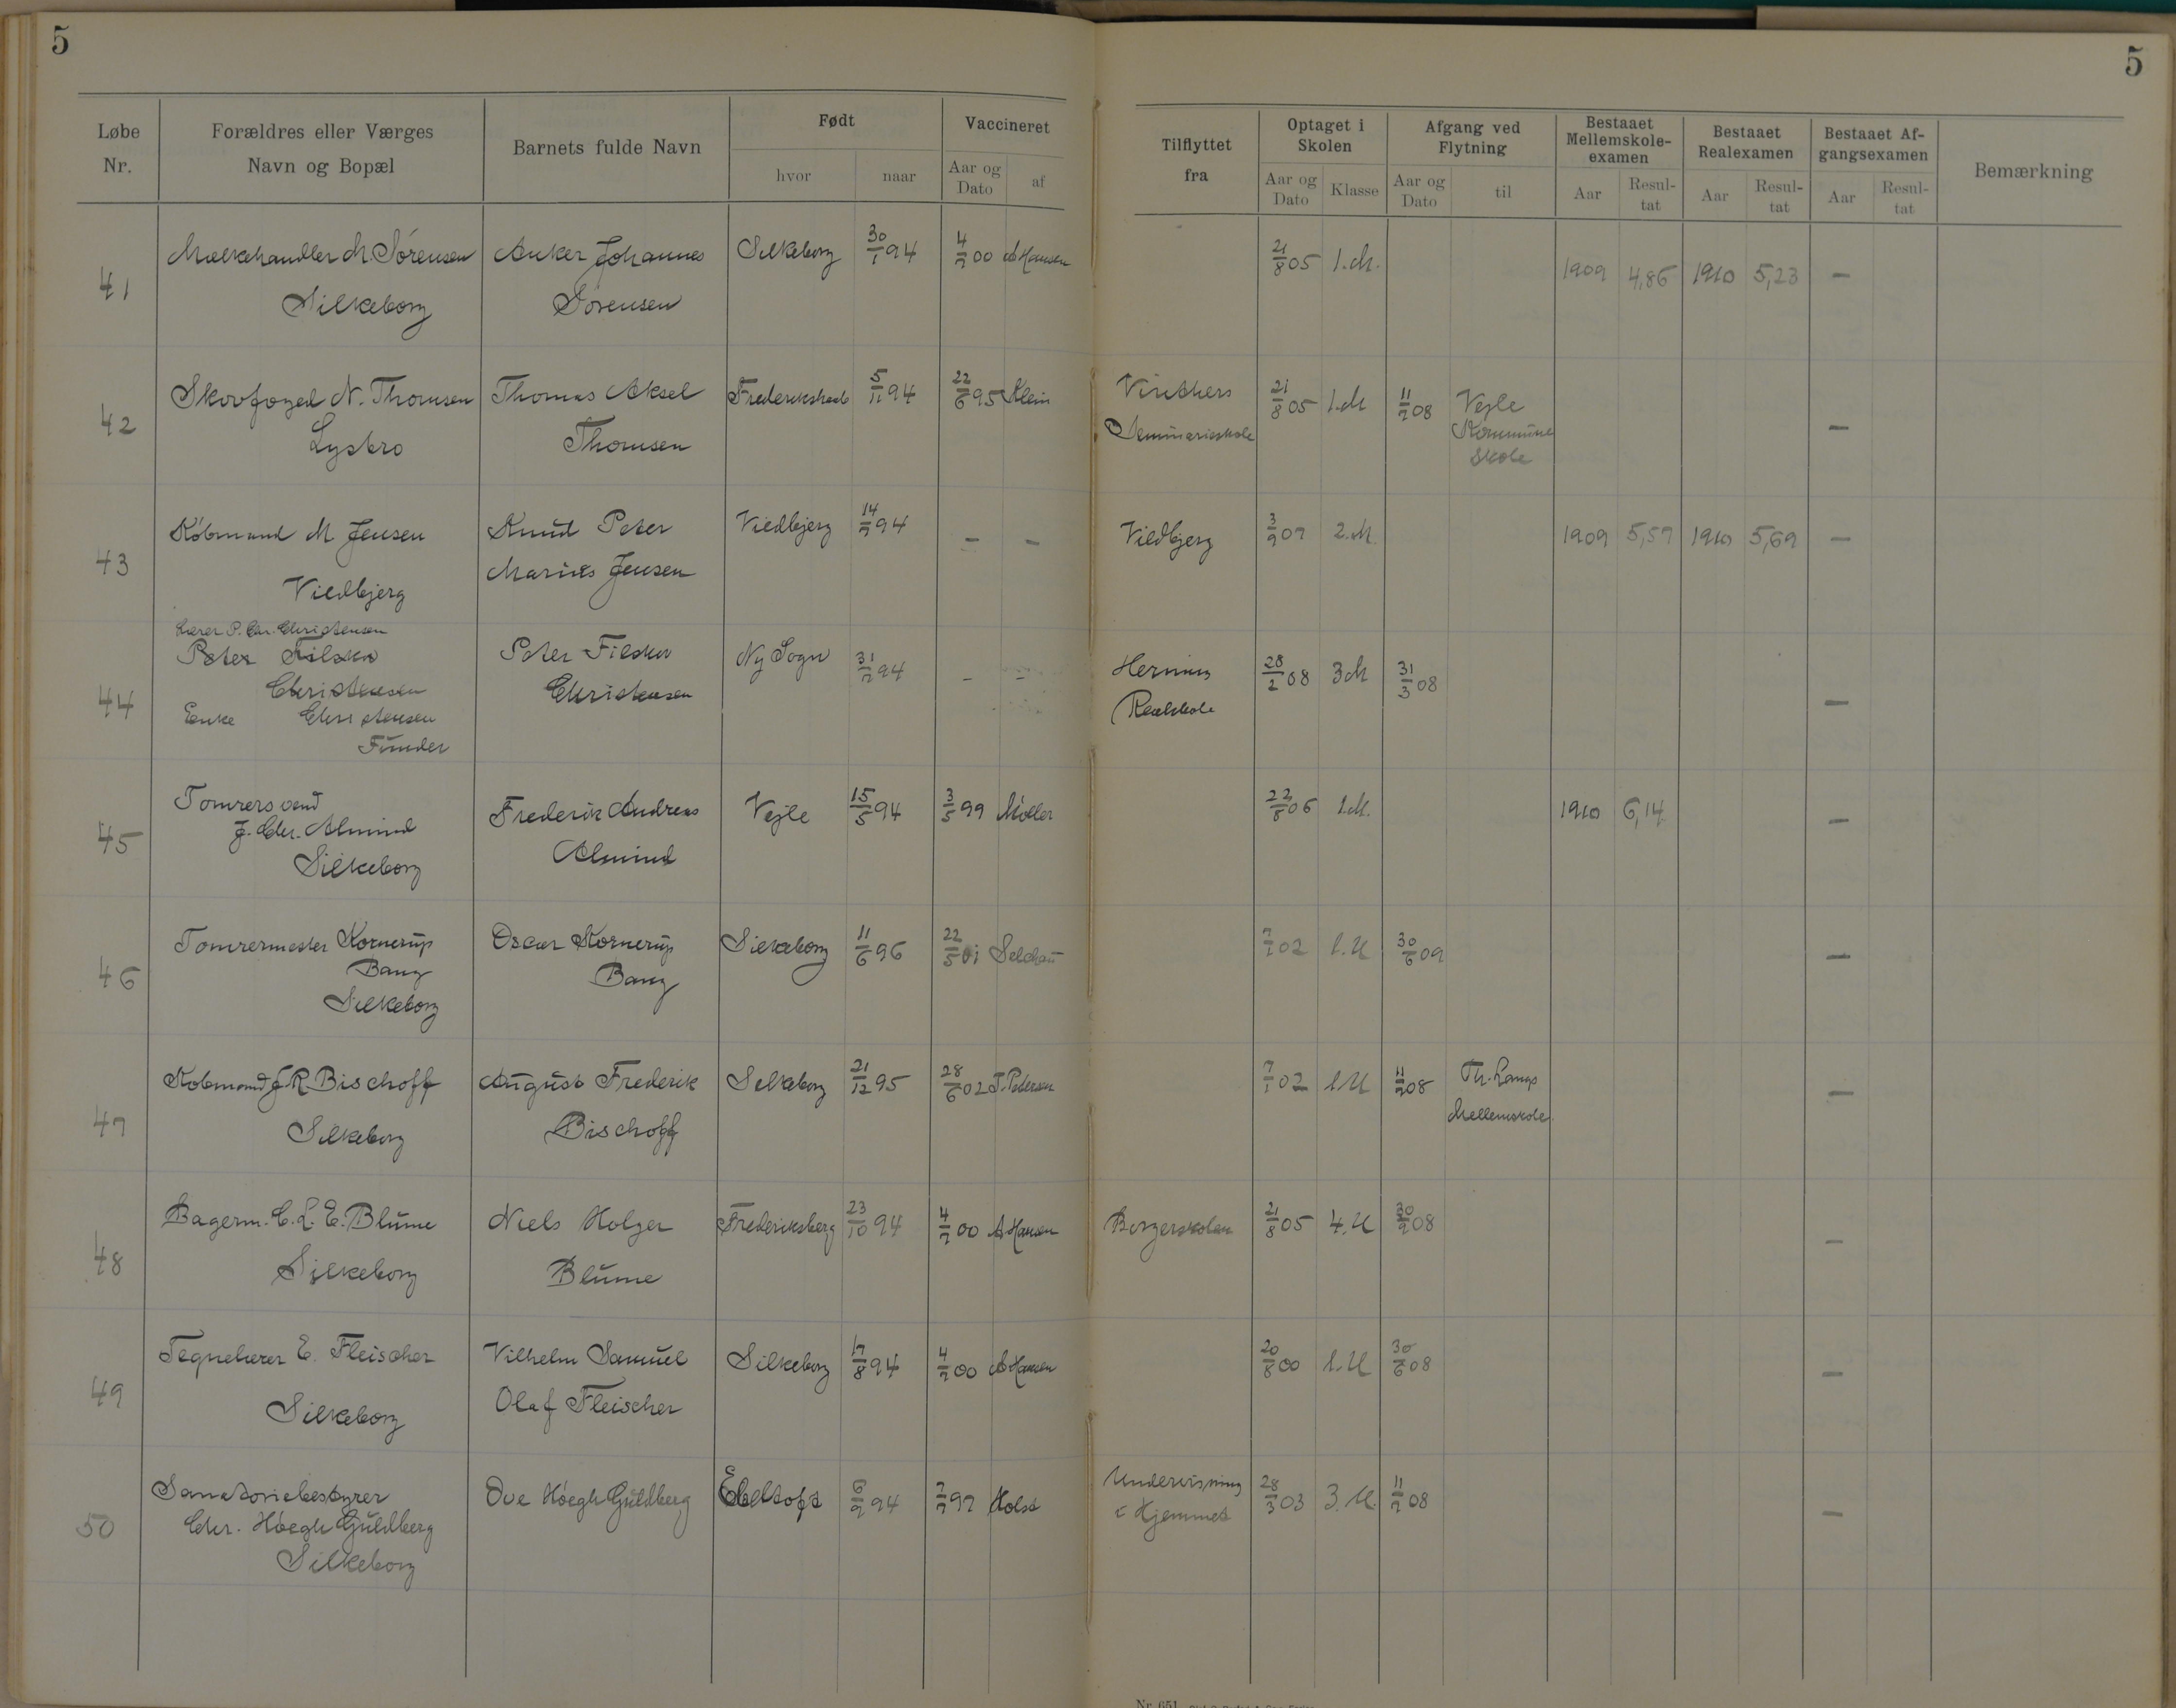 5
5
Løbe Nr.
Forældres eller Værges Navn og Bopæl
Barnets fulde Navn
Født
hvor
naar
Vaccineret
Aar og Dato
af
Tilflyttet fra
Optaget i Skolen
Aar og Dato
Klasse
Afgang ved Flytning
Aar og Dato
til
Bestaaet Mellemskole-examen
Aar
Resul-tat
Bestaaet Realexamen
Aar
Resul-tat
Bestaaet Af-gangsexamen
Aar
Resul-tat
Bemærkning
41 Mælkehandler M. Sørensen Anker Johannes Silkeborg 30/1 94 4/7 00 A Hansen 21/8 05 1.M. 1909 4,86 1910 5,23 —
Silkeborg Sørensen
42 Skovfoged N. Thomsen Thomas Aksel 5/11 94 22/6 95 Klein Vinthers 21/8 05 1.M 11/7 08 Vejle —
Lysbro Thomsen Seminarieskole Kommune
Skole
43 Købmand M Jensen Knud Peter Vildbjerg 14/7 94 – – Vildbjerg 3/9 07 2.M. 1909 5,57 1910 5,69 —
Vildbjerg Marius Jensen
Lærer P. Chr. Christensen
44 Peter Filskov Peter Filskov Ny Sogn 31/7 94 – – Herning 28/2 08 3 M 31/3 08 —
Christensen Christensen Realskole
Enke Christensen
Funder
45 Tømrersvend Frederik Andreas Vejle 15/5 94 3/5 99 Møller 22/8 06 1.M. 1910 6,14 —
J. Chr. Almind Almind
Silkeborg
46 Tømrermester Kornerup Oscar Kornerup Silkeborg 11/6 96 22/5 01 Selchau 7/1 02 1.U 30/6 09 —
Bang Bang
Silkeborg
47 Købmand J. R. Bischoff August Frederik Silkeborg 21/12 95 28/6 02 J. Pedersen 7/1 02 1.U 11/7 08 Th. Langs —
Silkeborg Bischoff Mellemskole.
48 Bagerm. C. L. E. Blume Niels Holger Frederiksberg 23/10 94 4/7 00 A Hansen Borgerskolen 21/8 05 4.U 30/9 08 —
Silkeborg Blume
49 Tegnelærer E. Fleischer Vilhelm Samuel Silkeborg 17/8 94 4/7 00 A Hansen 20/8 00 1.U 30/6 08 —
Silkeborg Olaf Fleischer
50 Sanatoriebestyrer Ove Høegh Guldberg Ebeltoft 6/2 94 7/7 97 Holst Undervisning 28/3 03 3.U. 11/7 08 —
Chr. Høegh Guldberg i Hjemmet
Silkeborg
Nr. 651